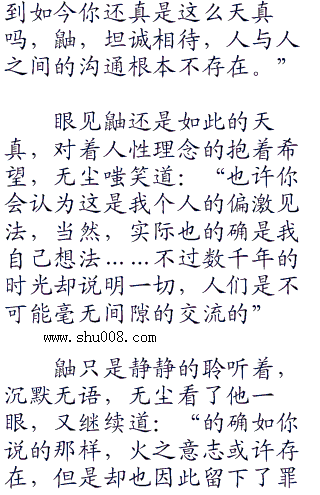 到如今你还真是这么天真
吗，鼬，坦诚相待，人与人
之间的沟通根本不存在。”
眼见鼬还是如此的天
真，对着人性理念的抱着希
望，无尘嗤笑道：“也许你
会认为这是我个人的偏激见
法，当然，实际也的确是我
自己想法……不过数千年的
时光却说明一切，人们是不
可能毫无间隙的交流的”
www.shu008.com
鼬只是静静的聆听着，
沉默无语，无尘看了他一
眼，又继续道：“的确如你
说的那样，火之意志或许存
在，但是却也因此留下了罪